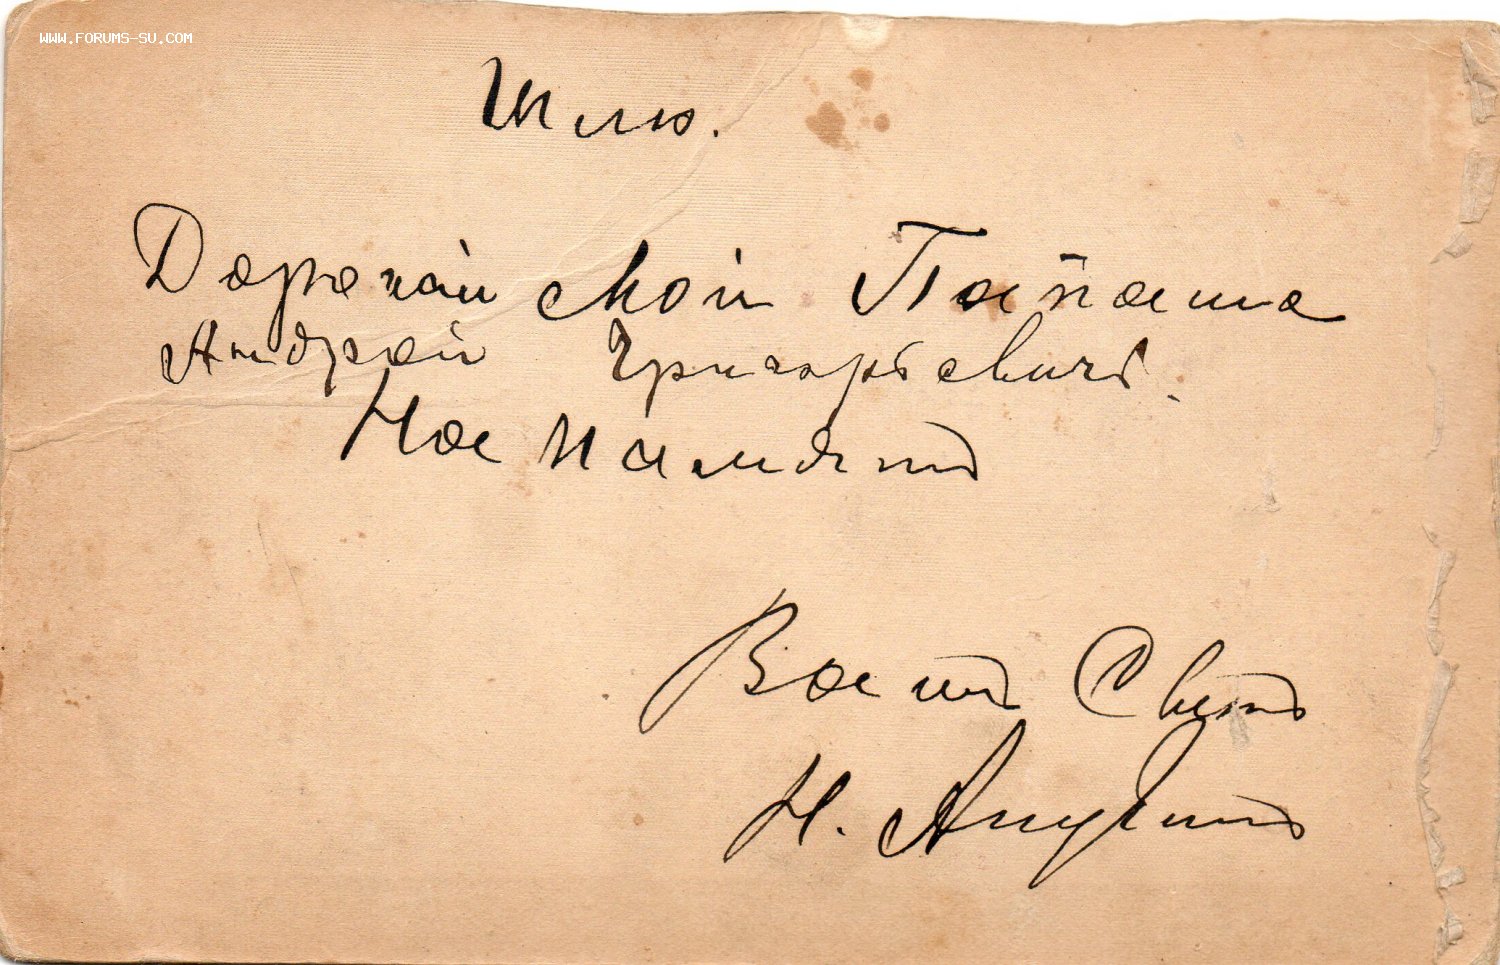 WWW.FORUMS-SU.COM
Шлю.
Дорогай Мой Папаша
Андрей Григорьевичъ.
На память
Вашъ Сватъ
Н.